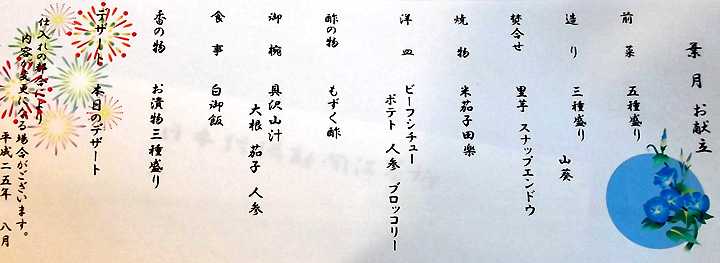 葉月 お献立
前菜 五種盛り
造り 三種盛り 山葵
焚合せ 里芋 スナップエンドウ
焼物 米茄子田楽
洋皿 ビーフシチュー
ポテト 人参 ブロッコリー
酢の物 もずく酢
御椀 具沢山汁
大根 茄子 人参
食事 白御飯
香の物 お漬物三種盛り
デザート 本日のデザート
仕入れの都合により
内容が変更になる場合がございます。
平成二五年 八月